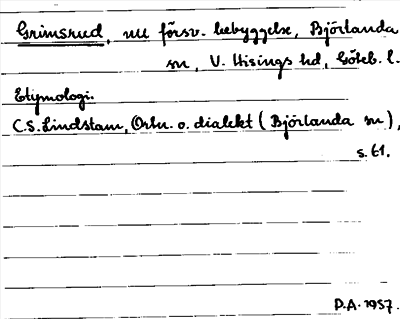 Grimsrud, nu försv. bebyggelse, Björlanda
sn, V. Hisings hd, Göteb. l.
Etymologi.
C.S. Lindstam, Ortn. o. dialekt (Björlanda sn),
s. 61.
P.A. 1957.